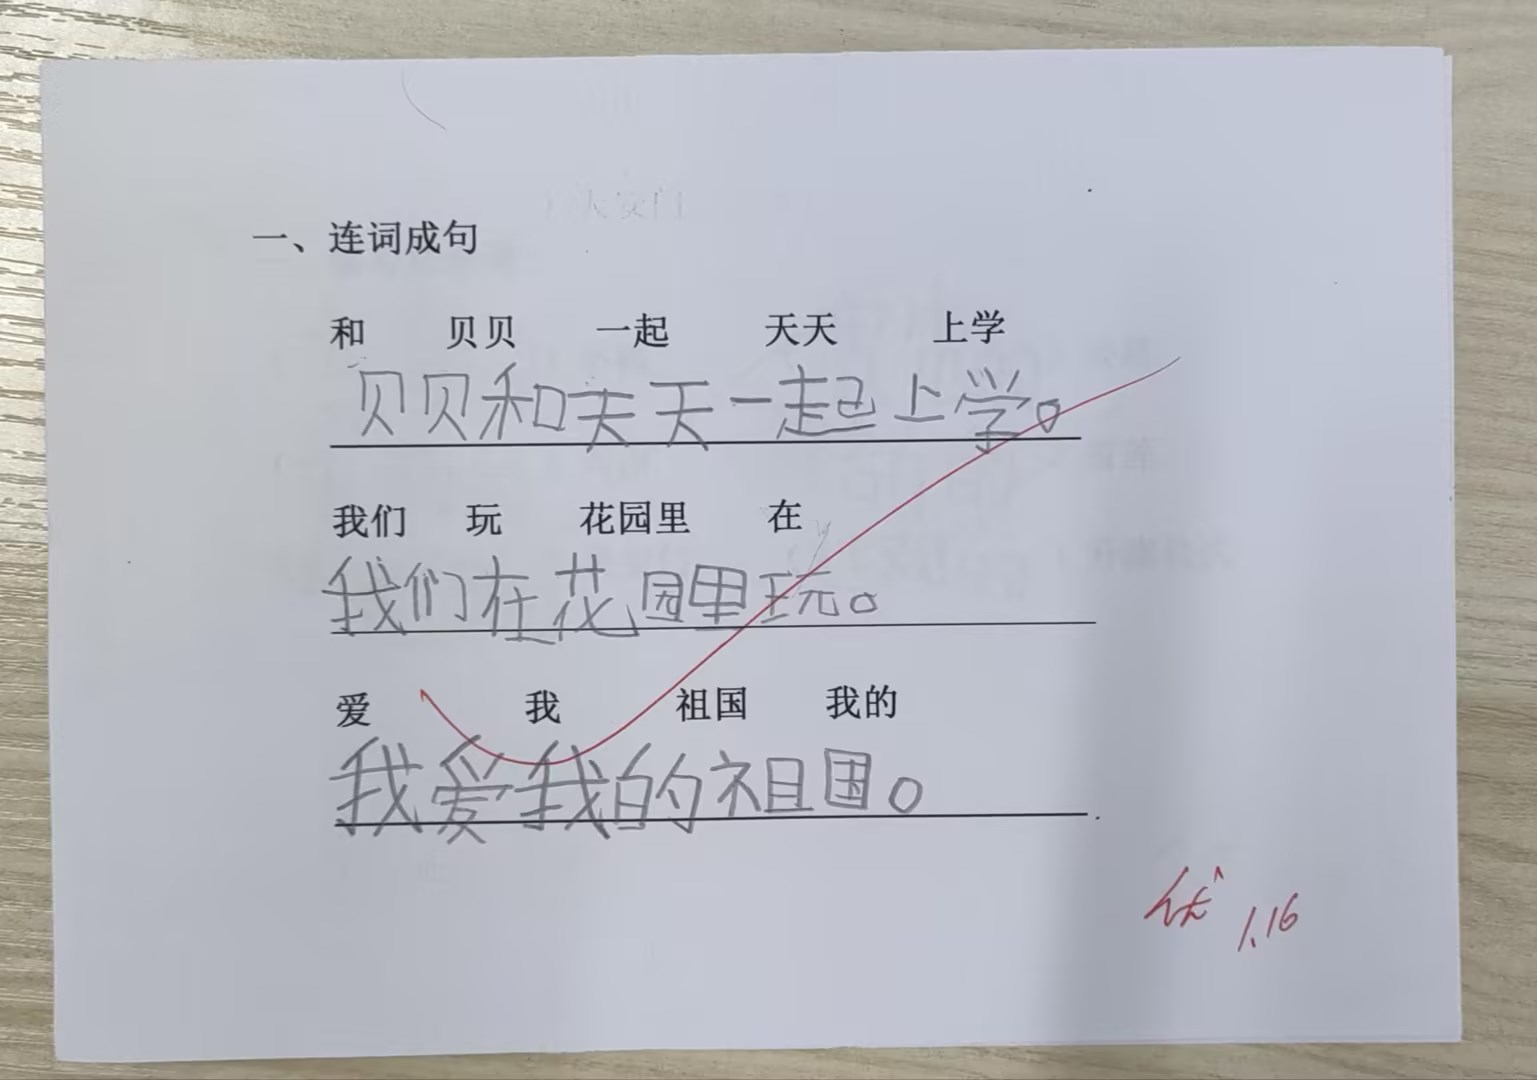 一、连词成句
和 贝贝 一起 天天 上学
贝贝和天天一起上学。
我们 玩 花园里 在
我们在花园里玩。
爱 我 祖国 我的
我爱我的祖国。
优 1.16